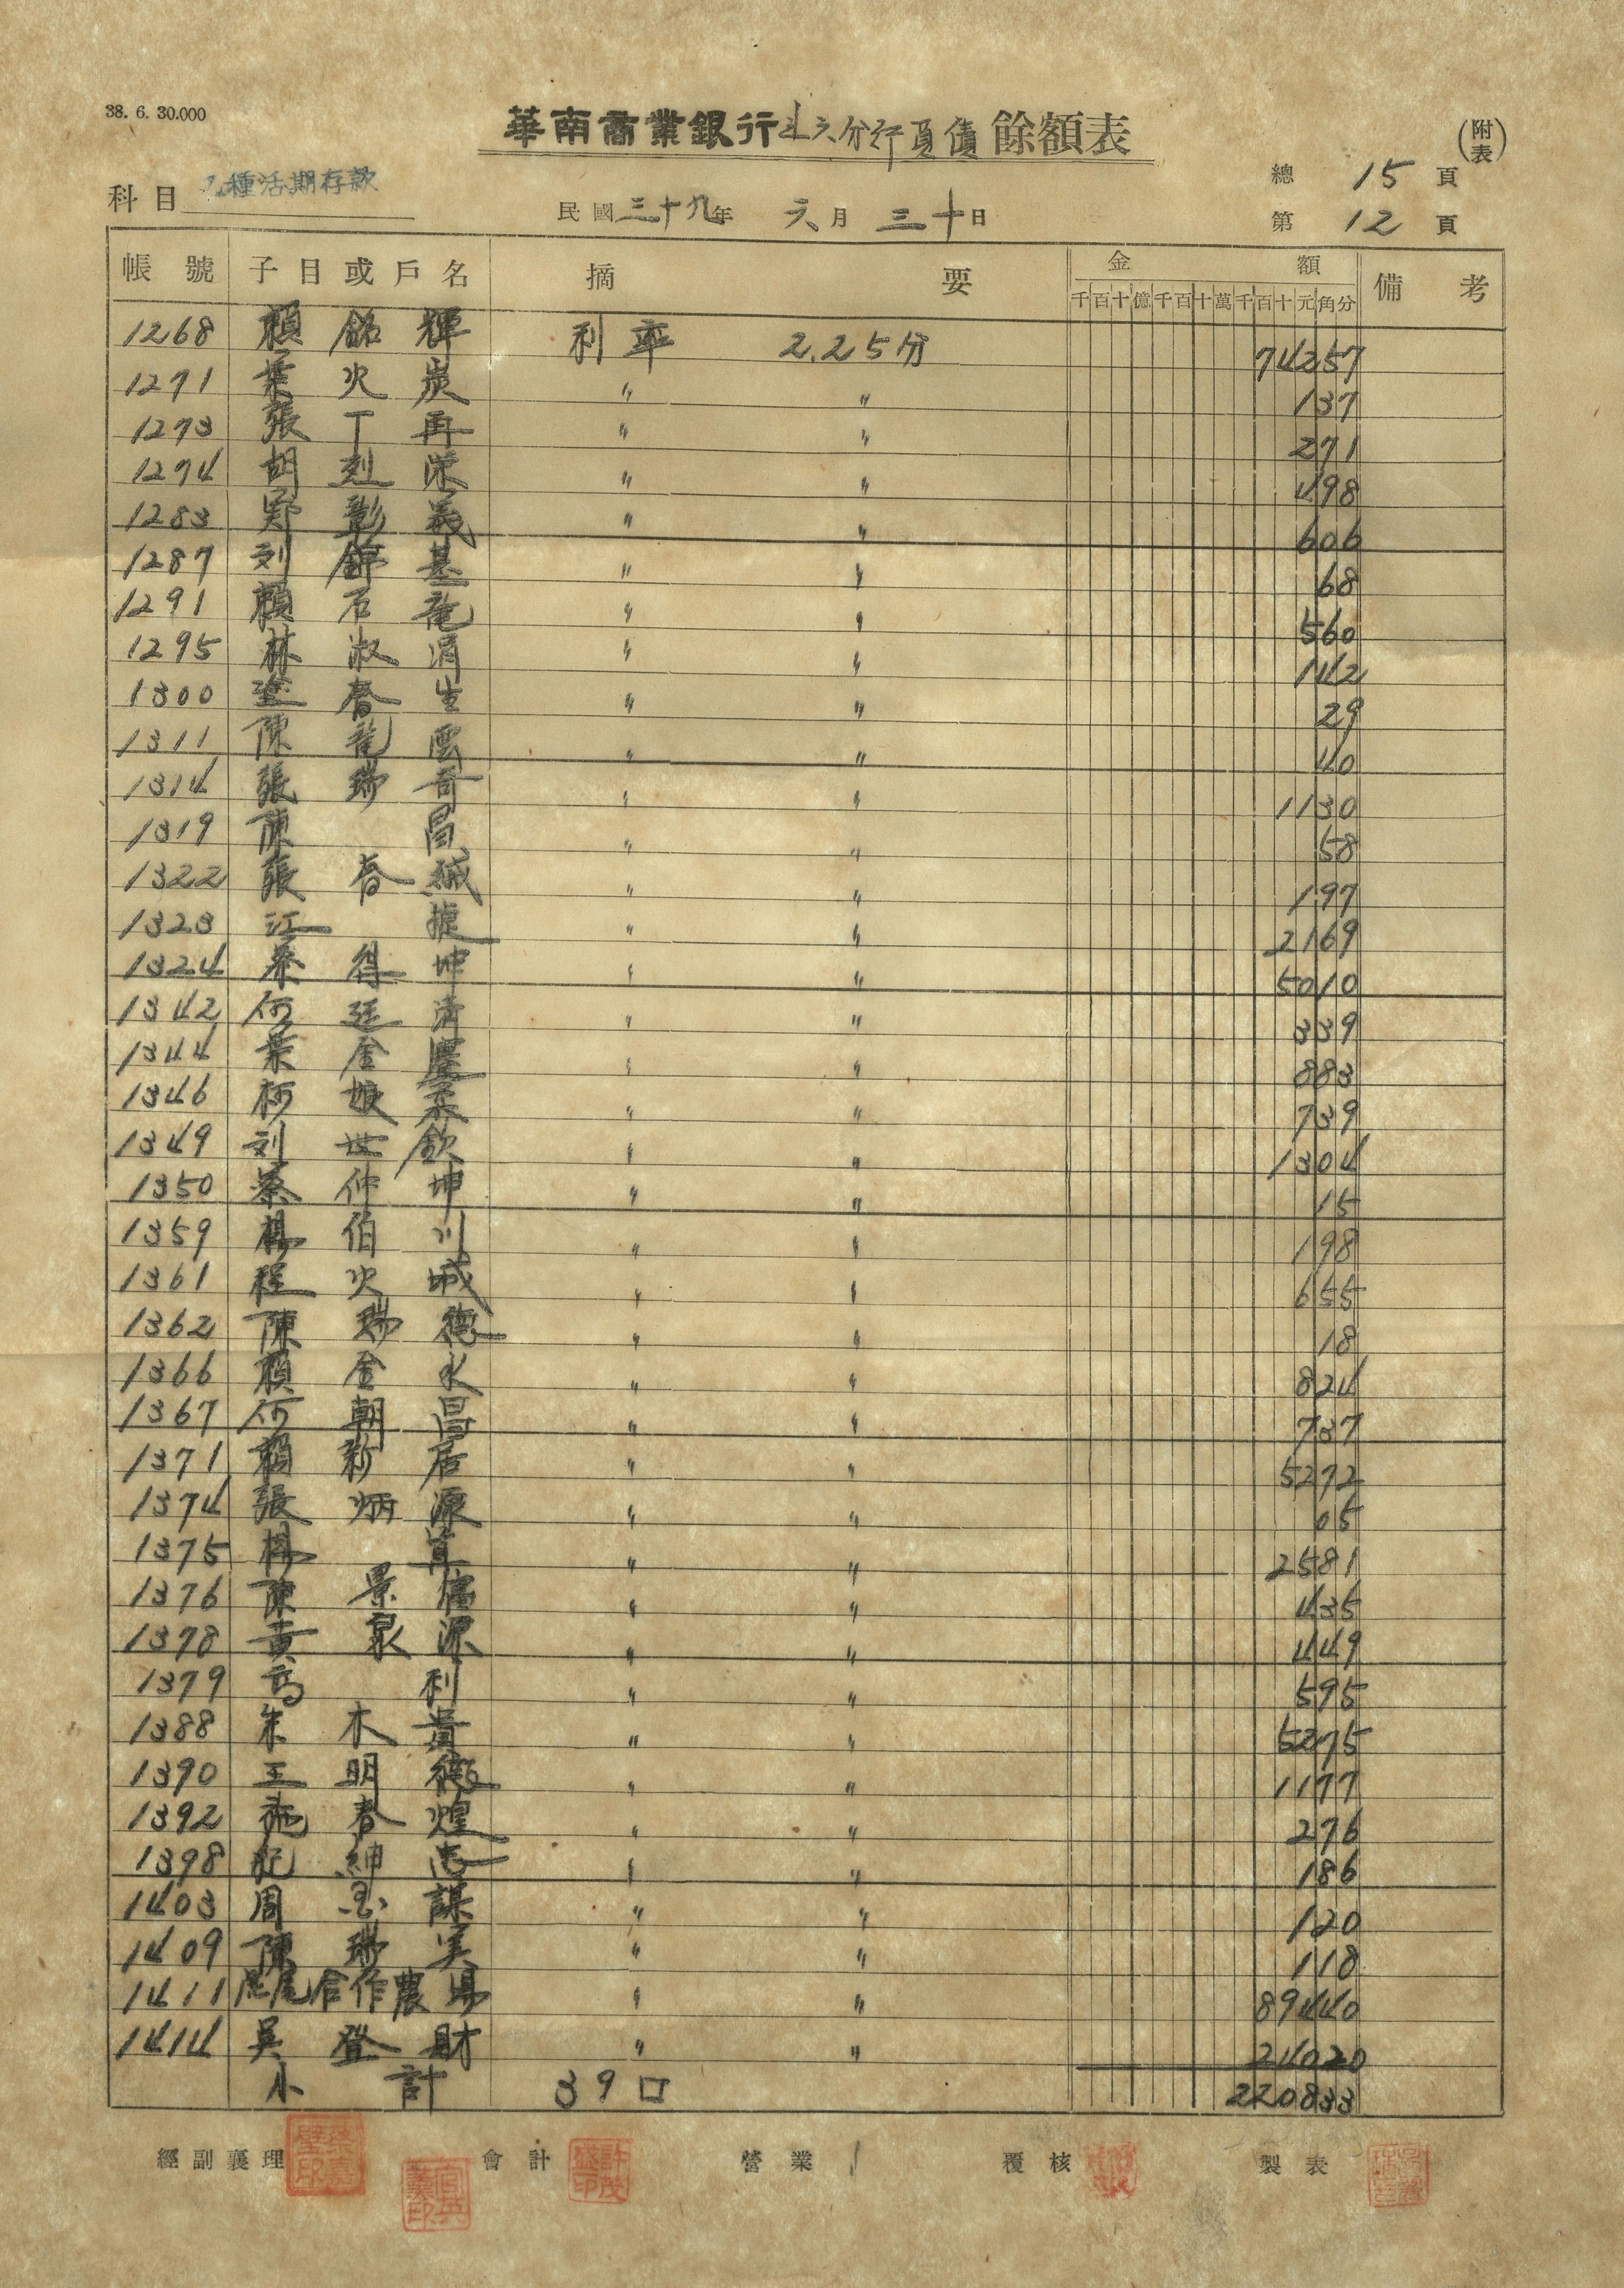 38. 6. 30.000
華南商業銀行斗六分行負債餘額表
(附表)
科目 乙種活期存款
民國三十九年 六月 三十日
總 15 頁
第 12 頁
帳號 子目或戶名 摘要 金額 備考
千百十億千百十萬千百十元角分
1268 賴銘輝 利率 2.25分 74257
1271 葉火炭 〃 〃 137
1273 張丁再 〃 〃 271
1274 胡烈榮 〃 〃 498
1283 鄭彰義 〃 〃 606
1287 刘錦基 〃 〃 68
1291 賴石龍 〃 〃 560
1295 林淑涓 〃 〃 142
1300 塗春生 〃 〃 29
1311 陳龍雲 〃 〃 40
1314 張瑞哥 〃 〃 1130
1319 陳昌 〃 〃 58
1322 張春絨 〃 〃 197
1323 江捷 〃 〃 2169
1324 蔡得坤 〃 〃 5010
1342 何廷清 〃 〃 339
1344 葉金 〃 〃 883
1346 柯娘柔 〃 〃 739
1349 刘世欽 〃 〃 1304
1350 蔡仲坤 〃 〃 15
1359 楊伯川 〃 〃 198
1361 程火城 〃 〃 655
1362 陳瑞德 〃 〃 18
1366 賴金永 〃 〃 824
1367 何朝昌 〃 〃 737
1371 賴新居 〃 〃 5272
1374 張炳源 〃 〃 05
1375 楊 〃 〃 2581
1376 陳景儒 〃 〃 435
1378 黃泉源 〃 〃 449
1379 高利 〃 〃 595
1388 朱木貴 〃 〃 5275
1390 王明德 〃 〃 1177
1392 施春煌 〃 〃 276
1398 紀紳忠 〃 〃 186
1403 周謀 〃 〃 120
1409 陳瑞 〃 〃 118
1411 尾合作農場 〃 〃 89440
1414 吳登財 〃 〃 24020
小計 39口 220833
經副襄理 會計 營業 覆核 製表